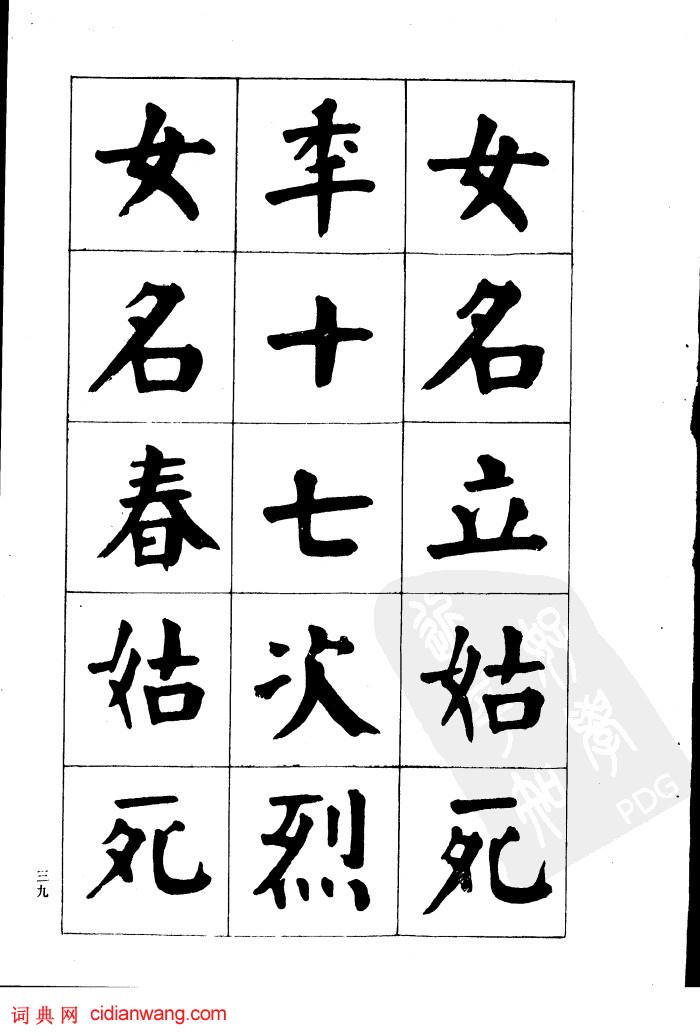 女名立姑死
年十七次烈
女名春姑死
三九
PDG
词典网 cidianwang.com